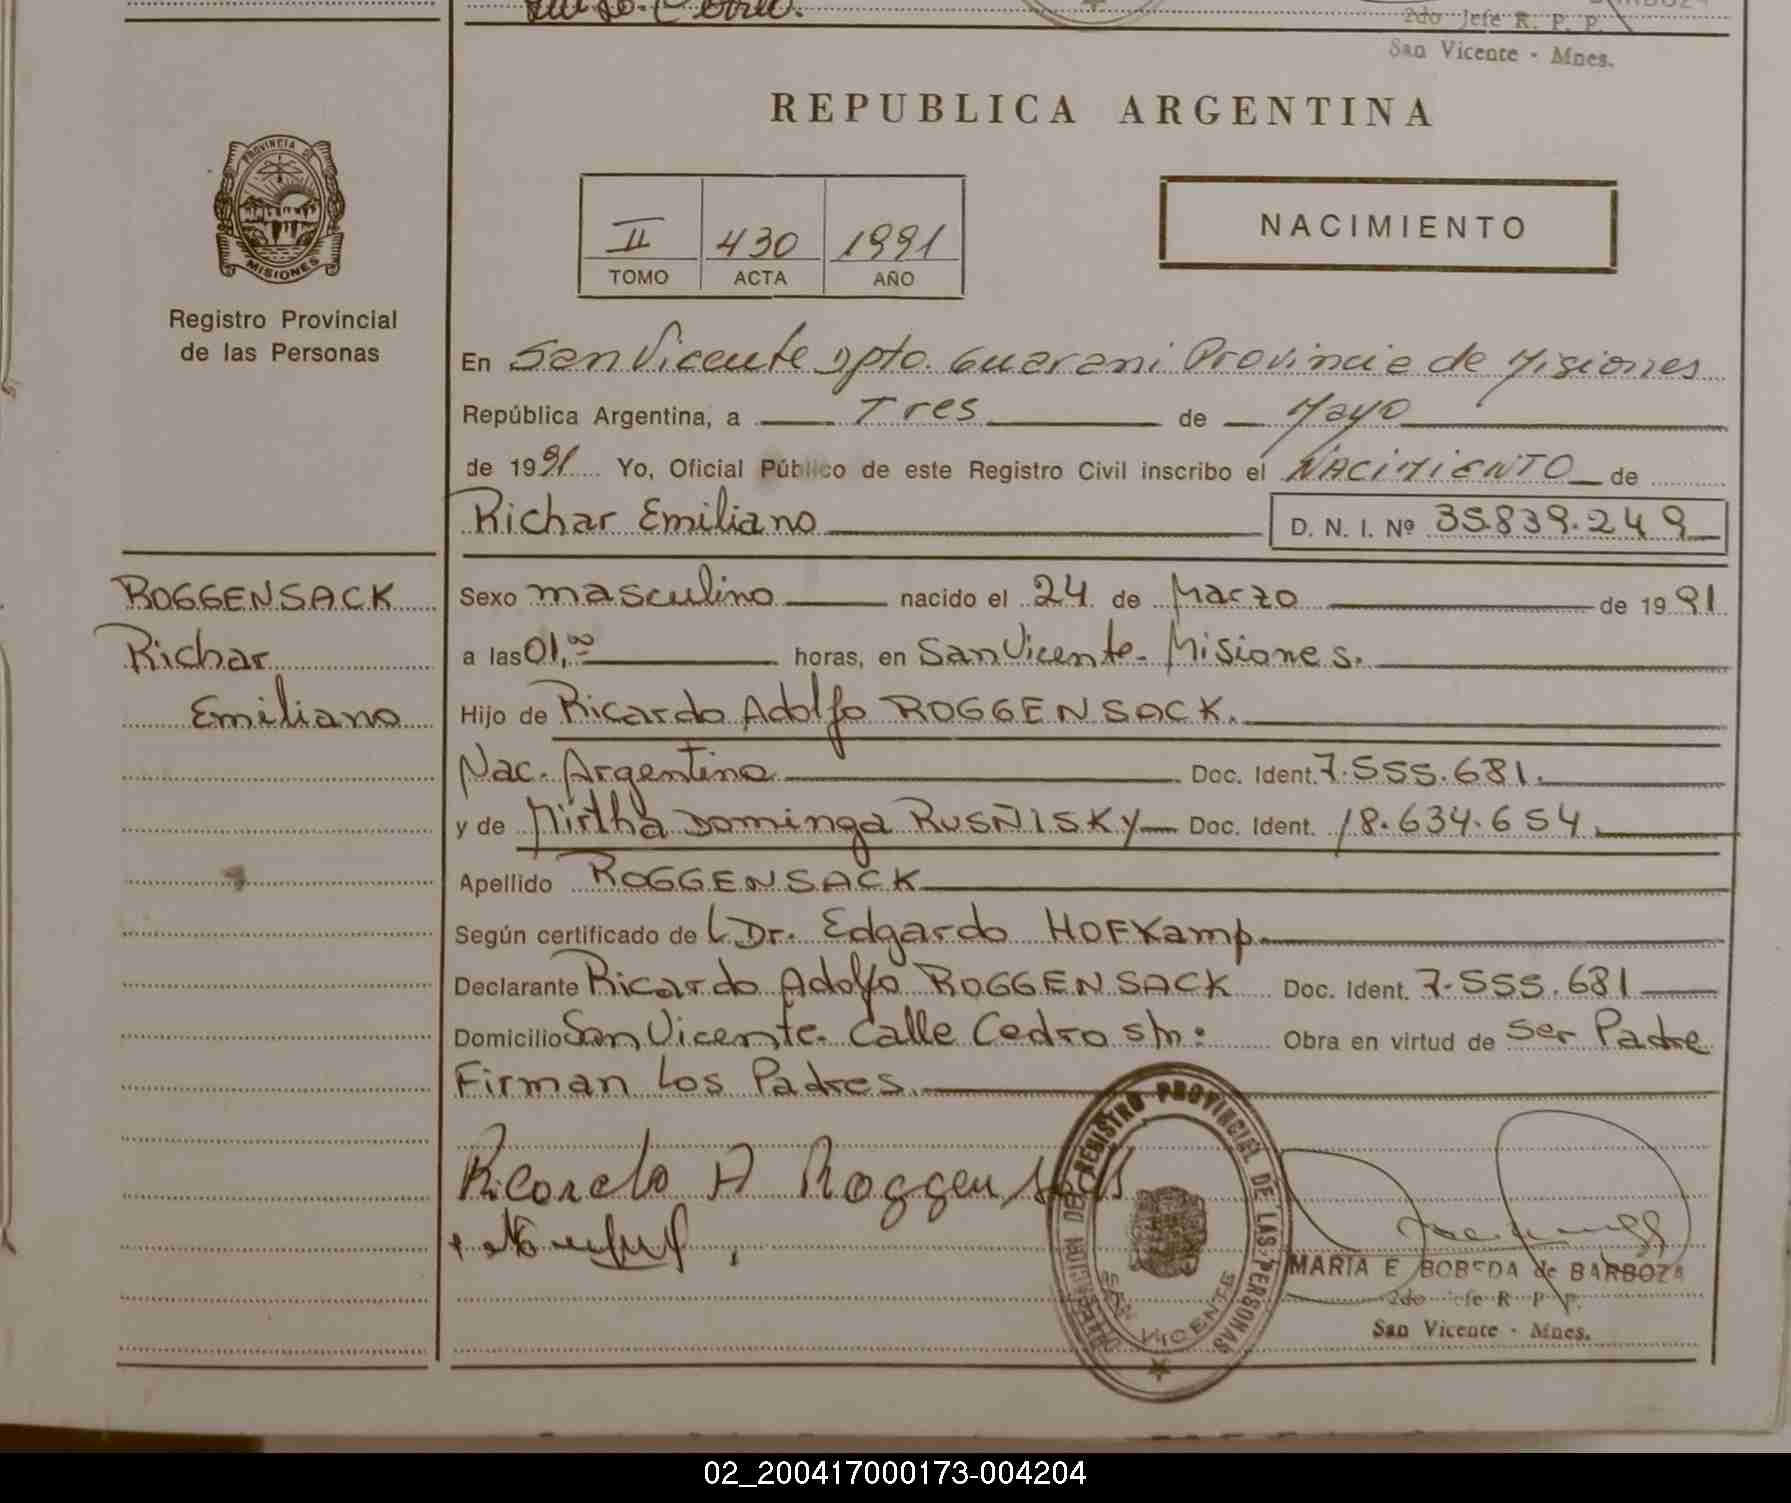 2do Jefe R. P. P.
San Vicente - Mnes.
REPUBLICA ARGENTINA
PROVINCIA DE
MISIONES
Registro Provincial
de las Personas
II 430 1991
TOMO ACTA AÑO
NACIMIENTO
En San Vicente Dpto. Guarani Provincia de Misiones
República Argentina, a Tres de Mayo
de 1991 Yo, Oficial Público de este Registro Civil inscribo el NACIMIENTO de
Richar Emiliano D. N. I. Nº 35.839.249
ROGGENSACK
Richar
Emiliano
Sexo masculino nacido el 24 de Marzo de 1991
a las 01,00 horas, en San Vicente - Misiones.
Hijo de Ricardo Adolfo ROGGENSACK.
Nac. Argentina Doc. Ident. 7.555.681.
y de Mirtha Dominga RUSÑISKY Doc. Ident. 18.634.654
Apellido ROGGENSACK
Según certificado de l Dr. Edgardo HOFKamp
Declarante Ricardo Adolfo ROGGENSACK Doc. Ident. 7.555.681
Domicilio San Vicente. Calle Cedro s/n: Obra en virtud de Ser Padre
Firman Los Padres.
Ricardo A Roggensack
REGISTRO PROVINCIAL DE LAS PERSONAS
SAN VICENTE
MARIA E BOBEDA de BARBOZA
2do Jefe R. P. P.
San Vicente - Mnes.
02_200417000173-004204